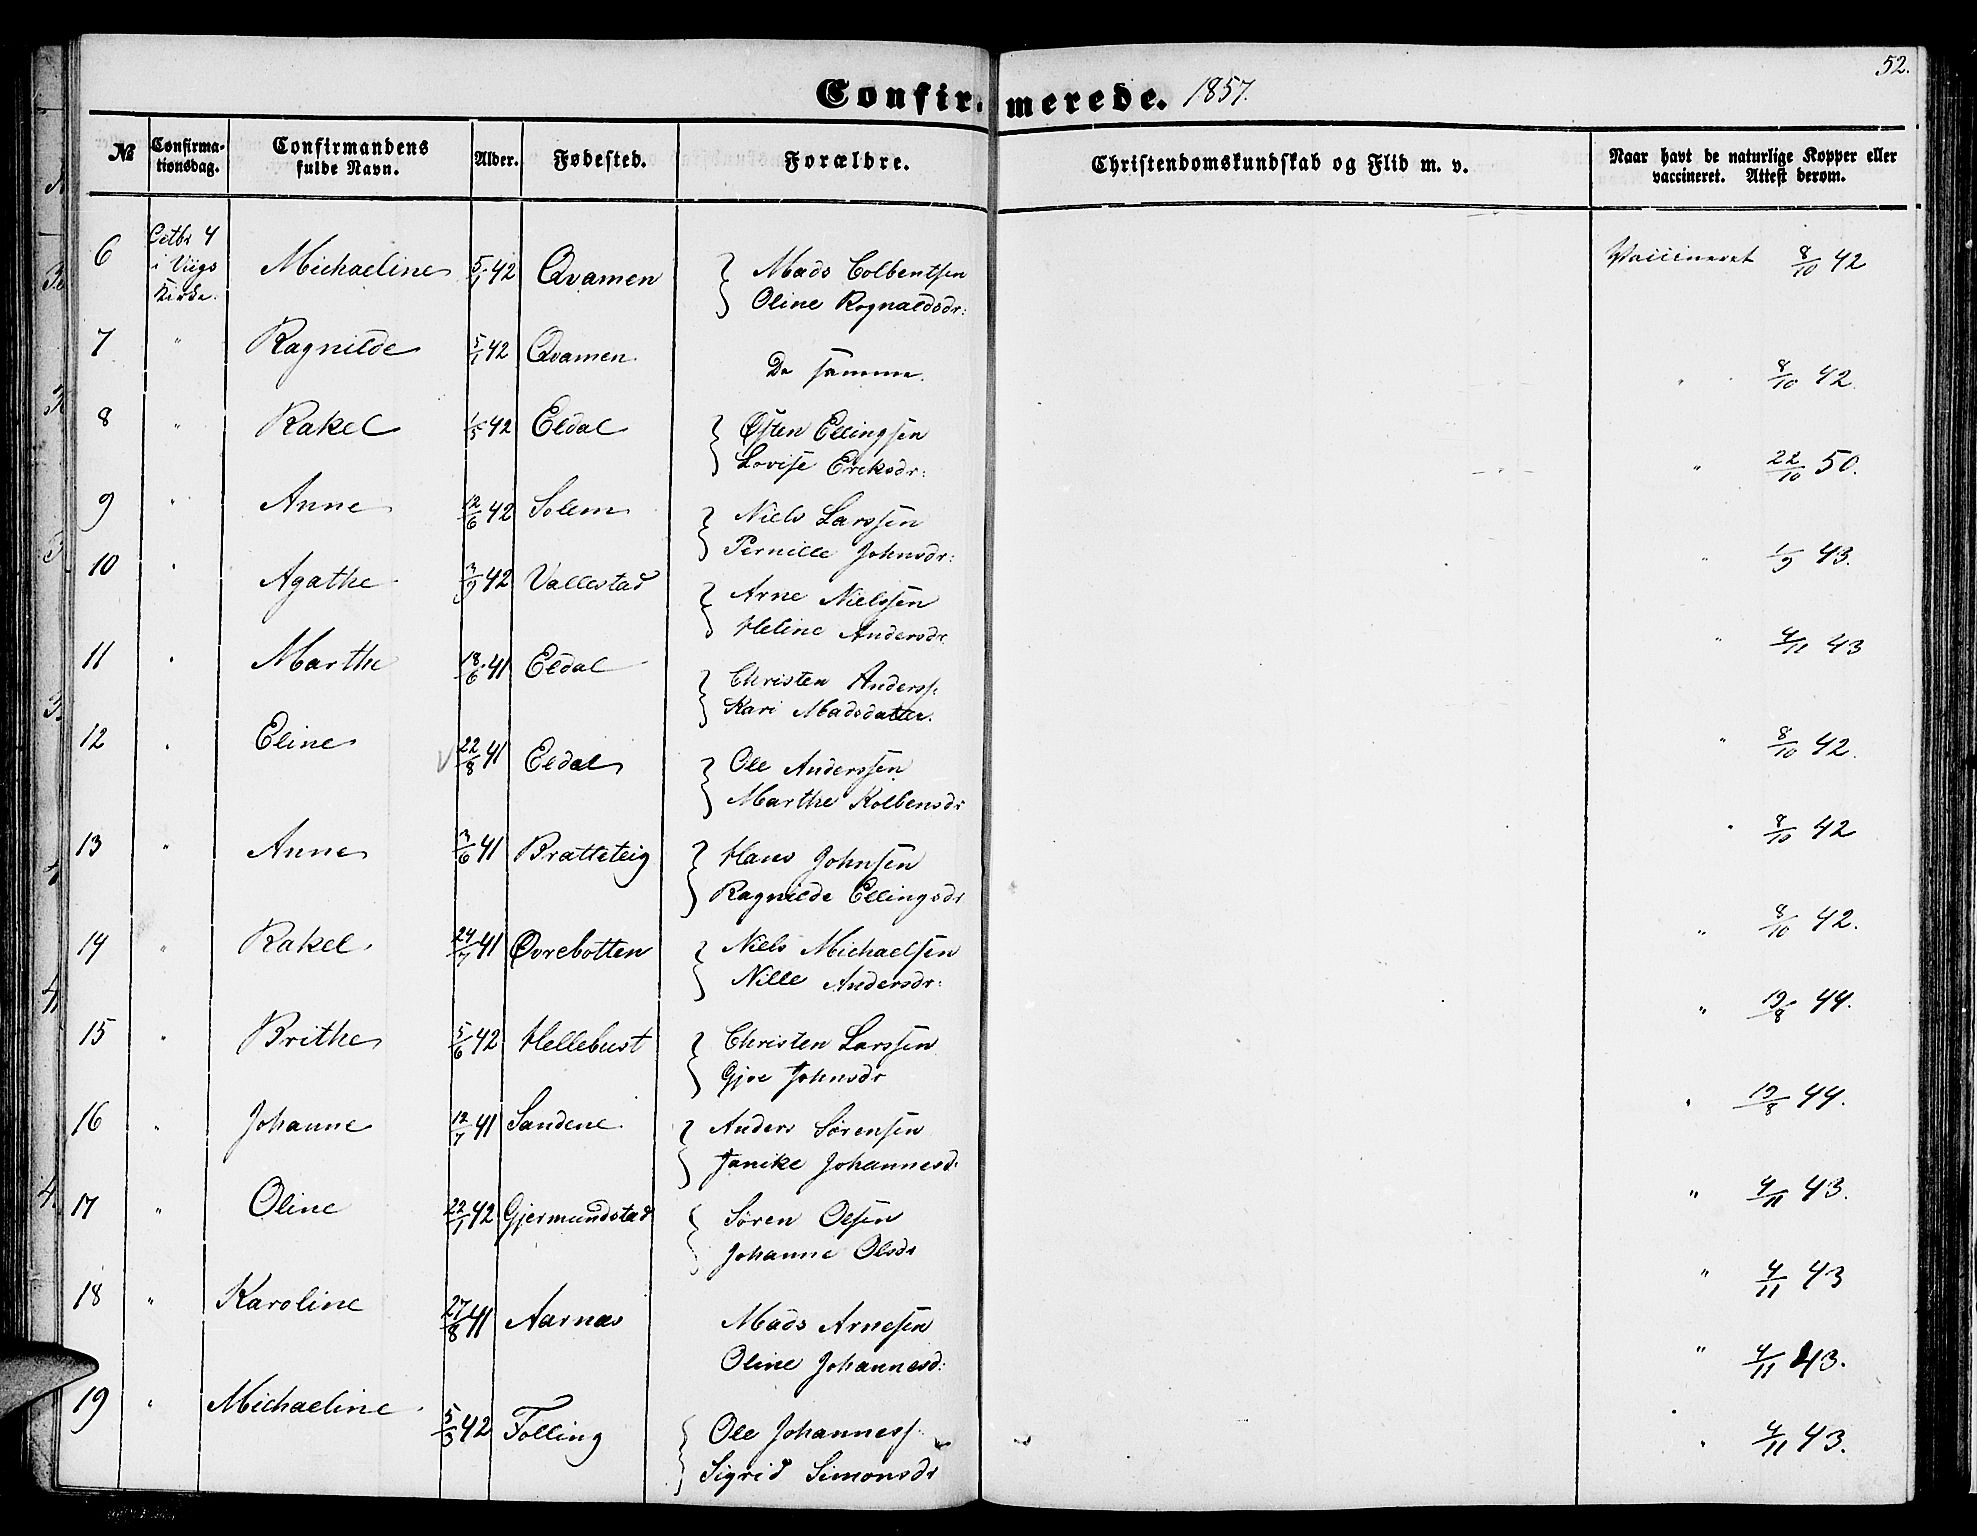 52.
Confirmerede. 1857.
№ Confirmationsdag. Confirmandens fulde Navn. Alder. Fødested. Forældre. Christendomskundskab og Flid m. v. Naar havt de naturlige Kopper eller vaccineret. Attest derom.
6 Octbr 4 i Viigs Kirke. Michaeline 5/1 42 Qvamen Mads Colbentsen Vaccineret 8/10 42
Oline Rognaldsdr:
7 " Ragnilde 5/1 42 Qvamen De samme. " 8/10 42.
8 " Rakel 1/5 42 Eldal Østen Ellingsen " 22/10 50.
Lovise Eriksdr:
9 " Anne 12/6 42 Solem Niels Larssen " 1/9 43.
Pernille Johnsdr:
10 " Agathe 3/9 42 Vallestad Arne Nielssen " 4/11 43
Heline Andersdr
11 " Marthe 18/6 41 Eldal Christen Anderss.
Kari Madsdatter.
12 " Eline 22/8 41 Eldal Ole Anderssen " 8/10 42.
Marthe Kolbensdr
13 " Anne 3/6 41 Bratteteig Hans Johnsen " 8/10 42
Ragnilde Ellingsdr
14 " Rakel 24/7 41 Øvrebotten Niels Michaelsen " 8/10 42.
Nille Andersdr:
15 " Brithe 5/6 42 Hellebust Christen Larssen " 19/8 44.
Gjoe Johnsdr
16 " Johanne 12/7 41 Sandene Anders Sørensen " 19/8 44.
Janike Johannesd:
17 " Oline 22/1 42 Gjermundstad Søren Olsen " 4/11 43.
Johanne Olsdr
18 " Karoline 27/8 41 Aarnæs Mads Arnesen " 4/11 43
Oline Johannesd: " 4/11 43.
19 " Michaeline 5/3 42 Tolling Ole Johanness. " 4/11 43.
Sigrid Simonsdr